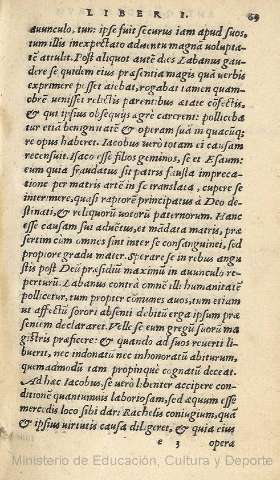 LIBER I. 69
auunculo, tum ipse fuit securus iam apud suos,
tum illis inexpectato aduentu magna volupta-
tē attulit. Post aliquot autē dies Labanus gau-
dere se quidem eius præsentia magis quā verbis
exprimere posset aiebat, rogabat tamen quam-
obrē venisset relictis parentibus ætate cōfectis,
& qui ipsius obsequijs egrē carerent: pollicēba-
tur etiā benignitatē & operam suā in quacūq;
re opus haberet. Iacobus verò totam ei causam
recensuit. Isaco esse filios geminos, se et Esaum:
eum quia fraudatus sit patris fausta impreca-
tione per matris artē in se translata, cupere se
interimere, quasi raptorē principatus à Deo de-
stinati, & reliquorū votorū paternorum. Hanc
esse causam sui aduētus, et mādata matris, præ-
sertim cum omnes sint inter se consanguinei, sed
propiore gradu mater. Sperare se in rebus angu-
stis post Deū præsidiū maximū in auunculo re-
perturū. Labanus contrà omnē illi humanitatē
pollicetur, tum propter cōmunes auos, tum etiam
ut affectū sorori absenti debitū erga ipsum præ-
sentem declararet. Velle se eum gregū suorū ma-
gistris præficere: & quando ad suos reuerti li-
buerit, nec indonatū nec inhonoratū abiturum,
quemadmodū tam propinquē cognatū deceat.
Ad hæc Iacobus, se verò libenter accipere condi-
tionē quantumuis laboriosam, sed aquum esse
mercedis loco sibi dari Rachelis coniugium, quā
& ipsius virtutis causa diligeret, & quia eius
e 3 opera
Ministerio de Educación, Cultura y Deporte